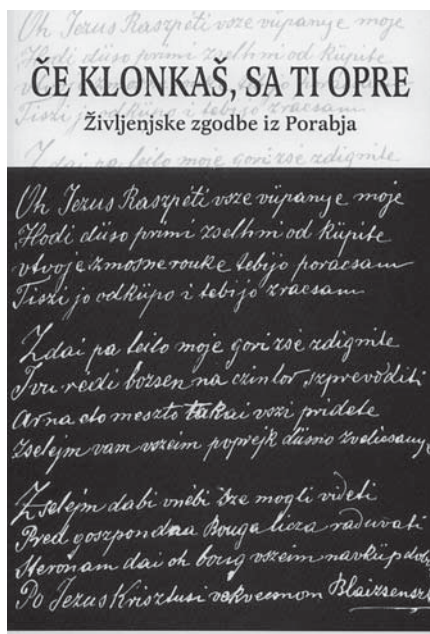 Oh Jezus Raszpéti vsze vüpanye moje
Hodi düso primi zselhmi od küpite
Tiszi jo odküpo i tebi jo zracsam
Zdai pa leito moje gori zsé zdignite
ČE KLONKAŠ, SA TI OPRE
Življenjske zgodbe iz Porabja
Oh Jezus Raszpéti vsze vüpanye moje
Hodi düso primi zselhmi od küpite
vtvoje zmosne rouke tebi jo poracsam
Tiszi jo odküpo i tebi jo zracsam
Zdai pa leito moje gori zsé zdignite
Tvu rédi bozsen na czintor szprevoditi
Arna eto meszto takai vszi pridete
Zselejm vam vszeim poprejk düsno zvelicsanye
Zselejm dabi vnébi sze mogli videti
Pred goszpondna Bouga licza raduvati
Steronam dai oh boug vszeim navküp
Po Jezus Krisztusi vekvecsnom